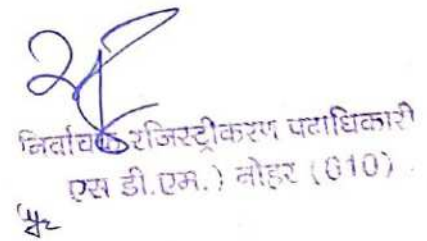 निर्वाचक रजिस्ट्रीकरण पदाधिकारी
एस डी.एम.) नोहर (010)